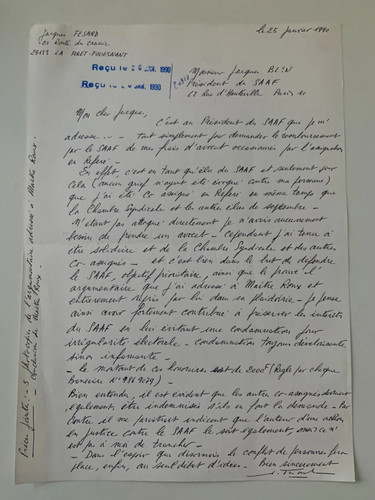 Jacques FESARD
le 25 janvier 1990
Route du
29133 LA FORET-FOUESNANT
Reçu le 26 JAN. 1990
Reçu le 26 JAN. 1990
Monsieur Jacques
Président du SAAF
62 Rue d'Hauteville Paris 10
Mon cher Jacques,
C'est au Président du SAAF que je m'
adresse... tout simplement pour demander le remboursement
par le SAAF de mes frais d'avocat occasionnés par l'assignation
en Référé -
En effet, c'est en tant qu'élu du SAAF et seulement pour
cela (aucun grief n'ayant été évoqué contre ma personne)
que j'ai été co assigné en Référé en même temps que
la Chambre Syndicale et les autres élus de septembre -
N'étant pas attaqué directement je n'avais aucunement
besoin de prendre un avocat - Cependant j'ai tenu à
être solidaire et de la Chambre Syndicale et des autres
co assignés - et c'est bien dans le but de défendre
le SAAF, objectif prioritaire, ainsi que le prouve l'
argumentaire que j'ai adressé à Maître Roux et
entièrement repris par lui dans sa plaidoirie - Je pense
ainsi avoir fortement contribué à préserver les intérêts
du SAAF en lui évitant une condamnation pour
irrégularité électorale - condamnation toujours dévalorisante
sinon infamante -
- le montant de ces honoraires est de 2000F (Réglé par chèque
Bien entendu, il est évident que les autres co assignés doivent
également être indemnisés s'ils en font la demande - Par
contre il me paraîtrait indécent que l'auteur d'une action
en justice contre le SAAF le soit également, mais ce n'
est pas à moi de trancher -
- Dans l'espoir que désormais le conflit de personnes fera
place, enfin, au seul débat d'idées - Bien sincèrement
Pièce jointe : - photocopie de l'argumentaire adressé à Maître Roux -
de Maître Roux -